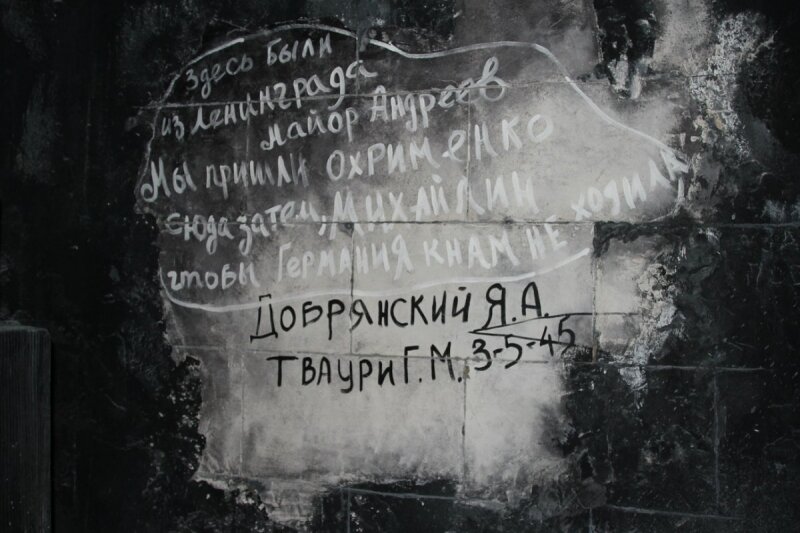 Здесь были
из Ленинграда
майор Андреев
Мы пришли ОХРИМЕНКО
сюда затем, МИХАЙЛИН
чтоби ГЕРМАНИЯ К НАМ НЕ ХОДИЛА
ДОБРЯНСКИЙ Я.А.
ТВАУРИ Г.М. 3-5-45